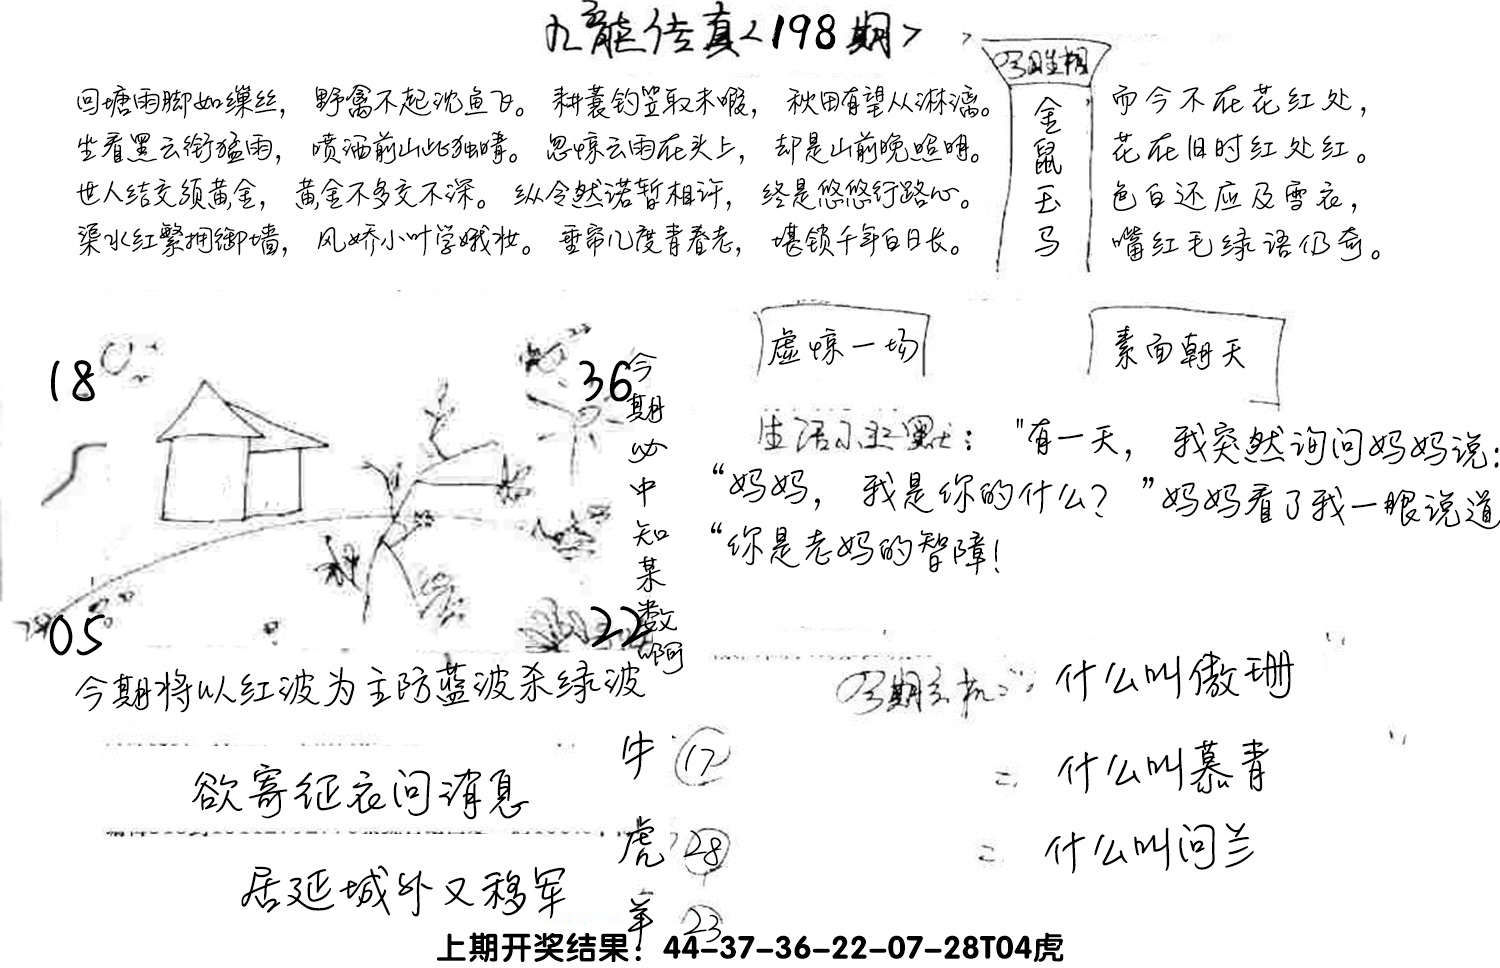 九龙传真<198期>
今期生相
金鼠玉马
回塘雨脚如缫丝，野禽不起沈鱼飞。耕蓑钓笠取未暇，秋田有望从淋漓。
坐看黑云衔猛雨，喷洒前山此独晴。忽惊云雨在头上，却是山前晚照明。
世人结交须黄金，黄金不多交不深。纵令然诺暂相许，终是悠悠行路心。
渠水红繁拥御墙，风娇小叶学娥妆。垂帘几度青春老，堪锁千年白日长。
而今不在花红处，
花在旧时红处红。
色白还应及雪衣，
嘴红毛绿语仍奇。
18
36
05
22
今期必中知某数啊
虚惊一场
素面朝天
生活小幽默："有一天，我突然询问妈妈说：
“妈妈，我是你的什么？”妈妈看了我一眼说道
“你是老妈的智障！
今期将以红波为主防蓝波杀绿波
欲寄征衣问消息
居延城外又移军
牛 17
虎 28
羊 23
今期玄机 什么叫傲珊
= 什么叫慕青
= 什么叫问兰
上期开奖结果：44-37-36-22-07-28T04虎